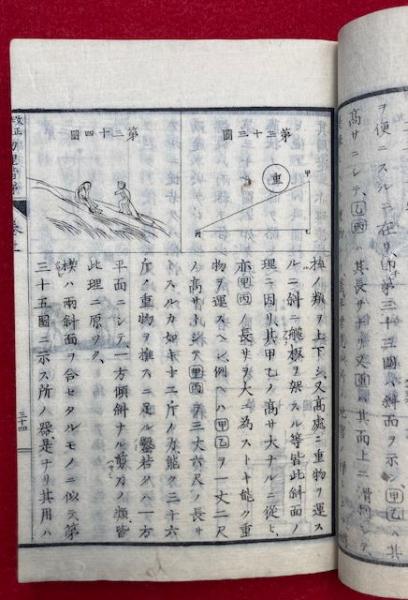 ヲ便ニスルニ在リ第三十三圖斜面ヲ示ス甲乙ハ其
高サニシテ乙丙ハ其長サナリ
第三十三圖
甲
重
第三十四圖
ノ類ヲ上下シ又高處ニ重物ヲ運ス
ルニ斜ニ板ヲ架スル等皆此斜面ノ
理ニ因リ其甲乙ノ高サ大ナルニ從ヒ
亦甲丙ノ長サヲ大ニ為ストキ能ク重
物ヲ運スヘシ例ヘハ甲乙ヲ一丈二尺
ノ高サトシ甲丙ヲ三丈六尺ノ長サ
トスルカ如キ十二斤ノ力能ク三十六
斤ノ重物ヲ推スニ足ル鑿若クハ一方
平面ニシテ一方傾斜ナル剪刀ノ類皆
此理ニ原ツク
楔ハ兩斜面ヲ合セタルモノニ似テ第
三十五圖ニ示ス所ノ器是ナリ其用ハ
改正
三十四